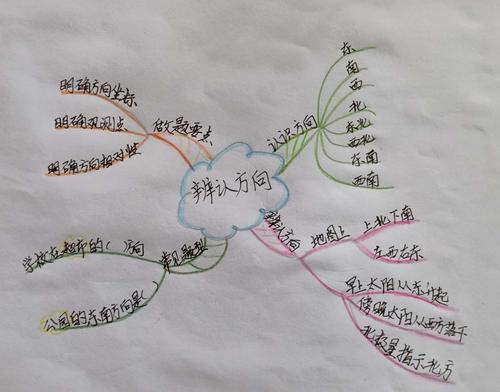 辨认方向
认识方向
东
南
西
北
东北
西北
东南
西南
辨认方向
地图上
上北下南
左西右东
早上太阳从东升起
傍晚太阳从西方落下
北极星指示北方
常见题型
学校在超市的( )方向
公园的东南方向是( )
做题要点
明确方向坐标
明确观测点
明确方向相对性